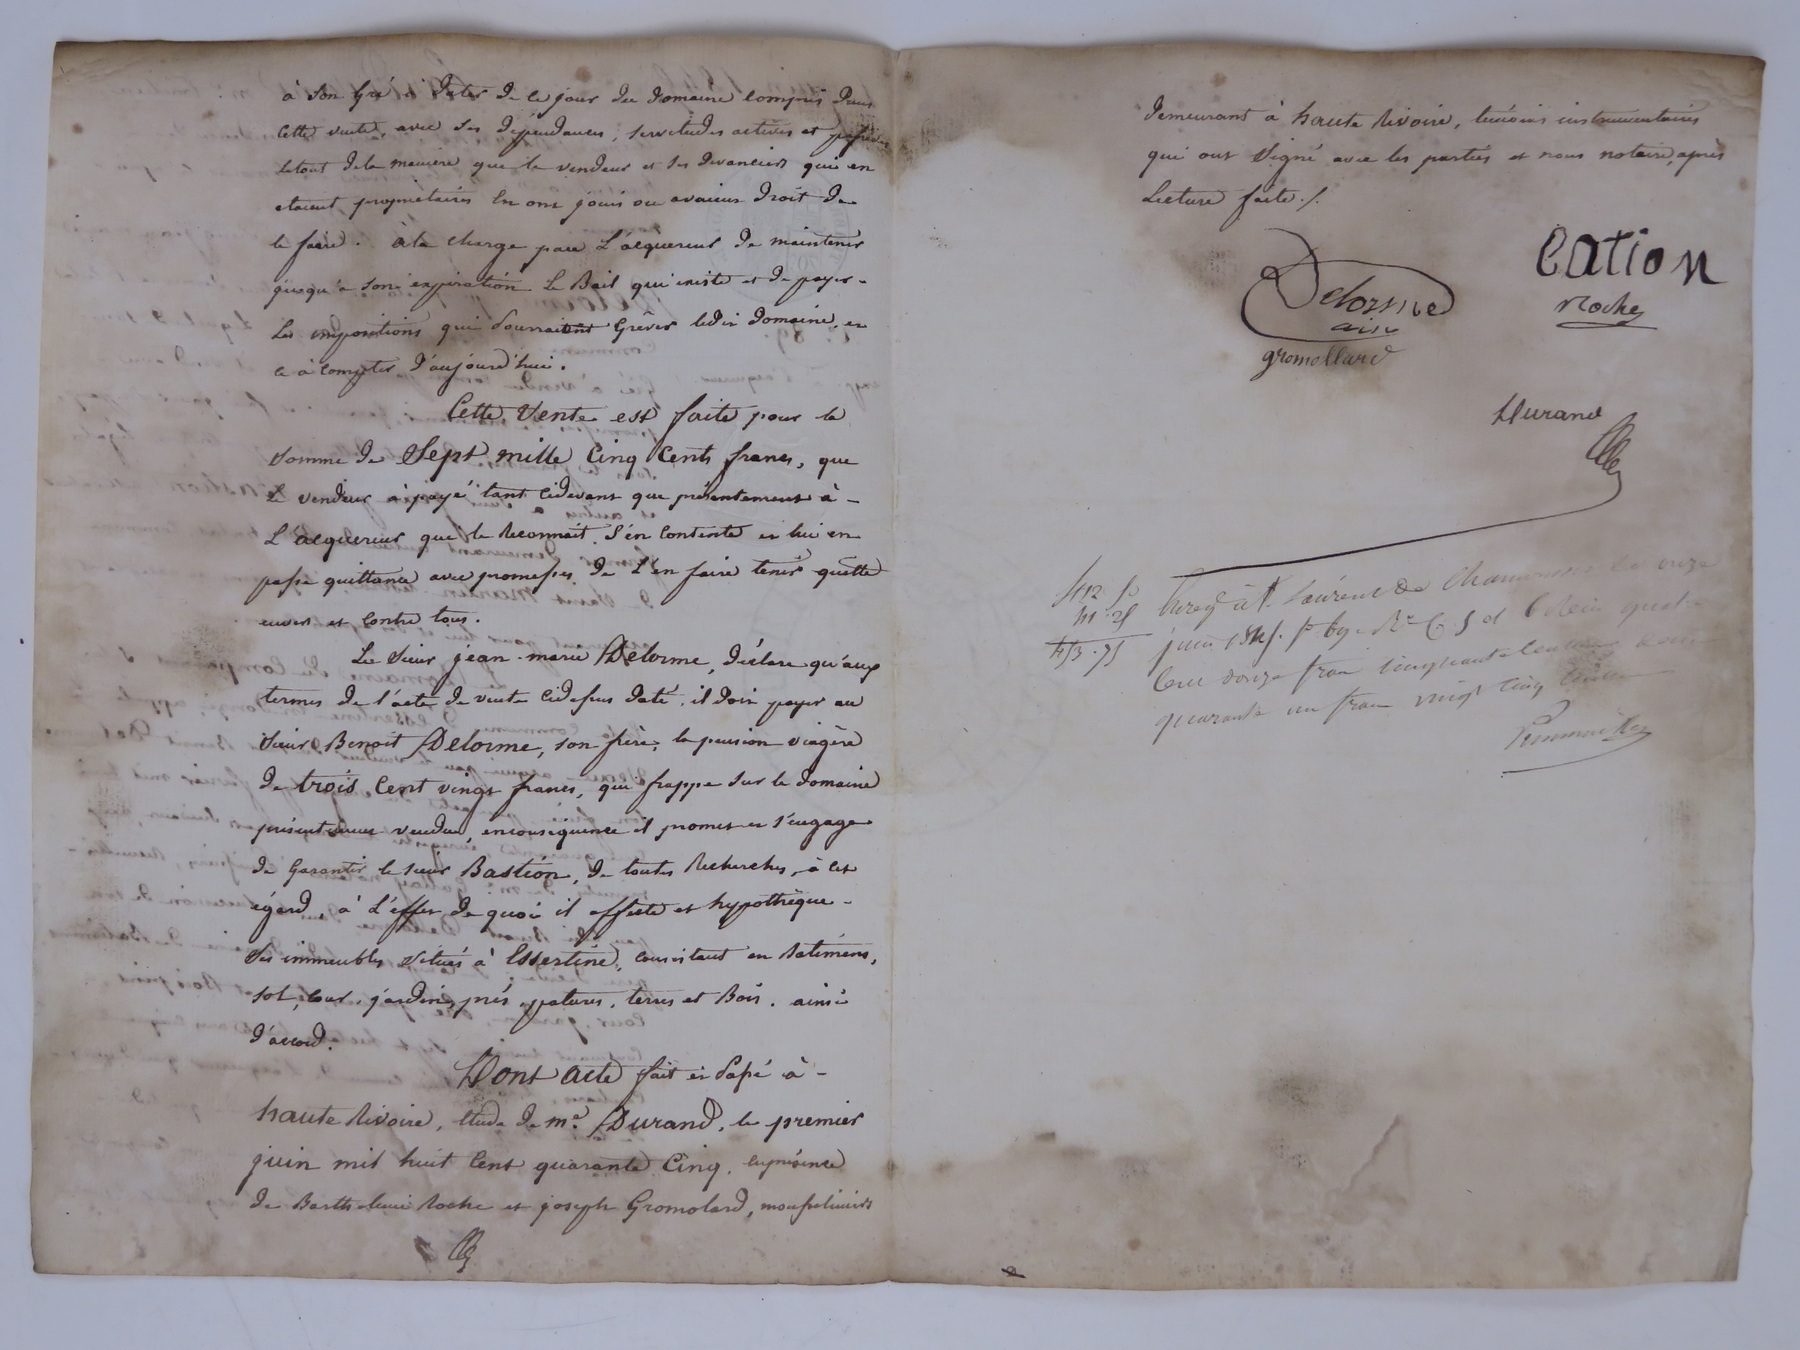 à son gré à dater de ce jour du domaine compris dans
cette vente, avec ses dépendances, servitudes actives et passives
le tout de la manière que le vendeur et ses devanciers qui en
étaient propriétaires en ont jouis ou avaient droit de
le faire. à la charge par L'acquereur de maintenir
jusqu'à son expiration le Bail qui existe et de payer -
Les impositions qui pourraient Grêver ledit domaine, et
ce à compter d'aujourd'hui.
Cette Vente est faite pour la
somme de Sept mille Cinq Cents francs, que
le vendeur a payé tant cidevant que présentement à -
L'acquereur que le Reconnait, S'en Contente et lui en
passe quittance avec promesses de L'en faire tenir quitte
envers et Contre tous.
Le Sieur jean-marie Delorme, déclare qu'aux
termes de l'acte de vente cidessus daté, il doit payer au
Sieur Benoit Delorme, son frère, la pension viagère
de trois Cent vingt francs, qui frappe sur le domaine
présentement vendu, enconséquence il promet et s'engage
de Garantir le sieur Bastion, de toutes Recherches, à cet
égard, à L'effet de quoi il affecte et hypothèque -
Ses immeubles situés à Essertine, consistant en Batimens,
sol, cour, jardin, prés, patures, terres et Bois. ainsi
d'accord.
Dont acte fait et Passé à -
haute Rivoire, étude de me. Durand, le premier
juin mil huit Cent quarante Cinq, enprésence
de Barthelemi Roche et joseph Gromolard, mousseliniers
demeurant à haute Rivoire, témoins instrumentaires
qui ont signé avec les parties et nous notaire, après
Lecture faite ./.
Delorme
Cation
ainé
Roche
gromollard
Durand
412 50
41 25
453.75
Enregé à St. Laurent de Chamousset le onze
juin 1845. fo 69. Ro Cs 5 et 6 Reçu quatre
Cent douze francs cinquante centimes decime
quarante un francs vingt cinq centimes